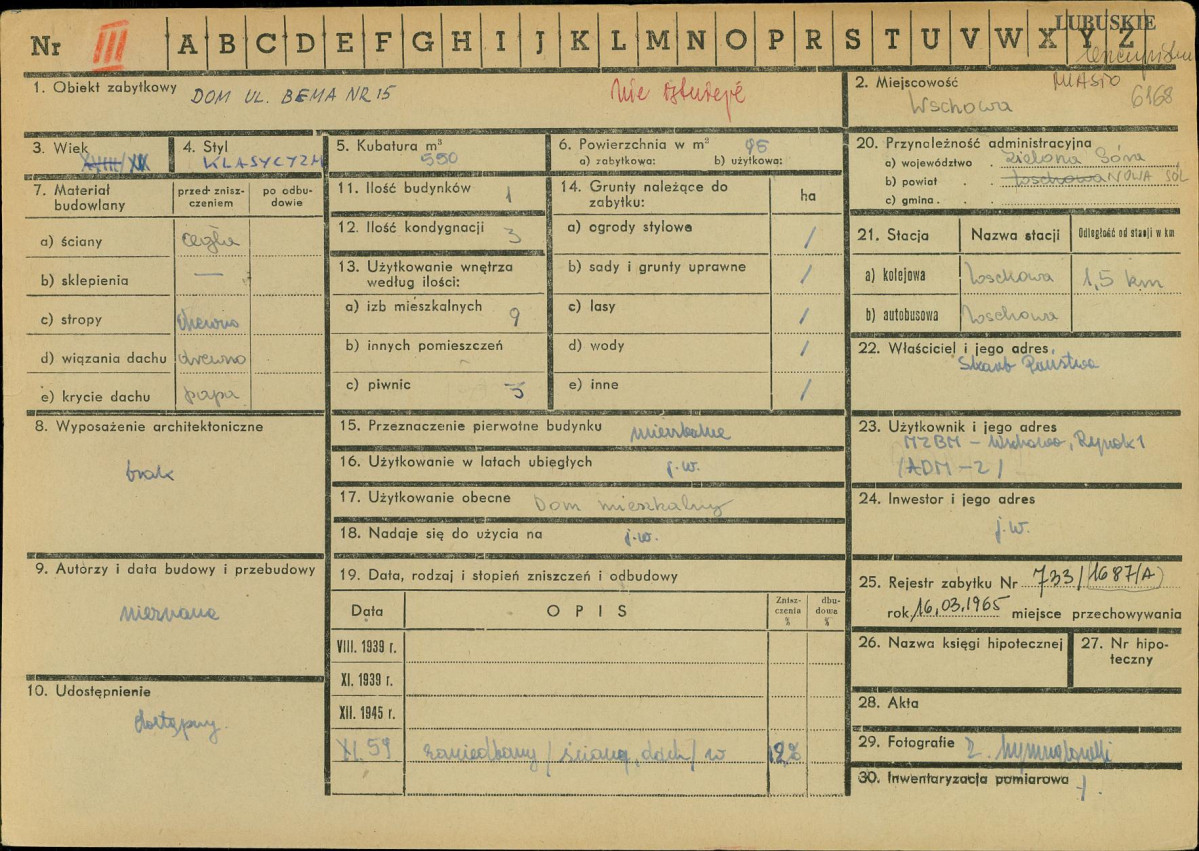 LUBUSKIE
Nr III A B C D E F G H I J K L M N O P R S T U V W X Y Z
1. Obiekt zabytkowy DOM UL. BEMA NR 15
nie istnieje
2. Miejscowość MIASTO
Wschowa 6168
3. Wiek
XVIII/XIX
4. Styl
KLASYCYZM
5. Kubatura m³
550
6. Powierzchnia w m² 95
a) zabytkowa: b) użytkowa:
7. Materiał budowlany
przed znisz-
czeniem
po odbu-
dowie
a) ściany cegła
b) sklepienia —
c) stropy drewno
d) wiązania dachu drewno
e) krycie dachu papa
8. Wyposażenie architektoniczne
brak
9. Autorzy i data budowy i przebudowy
nieznane
10. Udostępnienie
dostępny.
11. Ilość budynków 1
12. Ilość kondygnacji 3
13. Użytkowanie wnętrza
według ilości:
a) izb mieszkalnych 9
b) innych pomieszczeń -
c) piwnic 5
14. Grunty należące do
zabytku:
ha
a) ogrody stylowe /
b) sady i grunty uprawne /
c) lasy /
d) wody /
e) inne /
15. Przeznaczenie pierwotne budynku mieszkalne
16. Użytkowanie w latach ubiegłych j.w.
17. Użytkowanie obecne Dom mieszkalny
18. Nadaje się do użycia na j.w.
19. Data, rodzaj i stopień zniszczeń i odbudowy
Data OPIS
Znisz-
czenia
%
dbu-
dowa
%
VIII. 1939 r.
XI. 1939 r.
XII. 1945 r.
XI. 59 zaniedbany / ściany, dach / w 12%
20. Przynależność administracyjna
a) województwo Zielona Góra
b) powiat Wschowa NOWA SÓL
c) gmina
21. Stacja Nazwa stacji Odległość od stacji w km
a) kolejowa Wschowa 1,5 km
b) autobusowa Wschowa
22. Właściciel i jego adres
Skarb Państwa
23. Użytkownik i jego adres
MZBM - Wschowa, Rynek 1
/ADM - 2/
24. Inwestor i jego adres
j.w.
25. Rejestr zabytku Nr 733/(1687/A)
rok 16.03.1965 miejsce przechowywania
26. Nazwa księgi hipotecznej
27. Nr hipo-
teczny
28. Akta
29. Fotografie
30. Inwentaryzacja pomiarowa /.